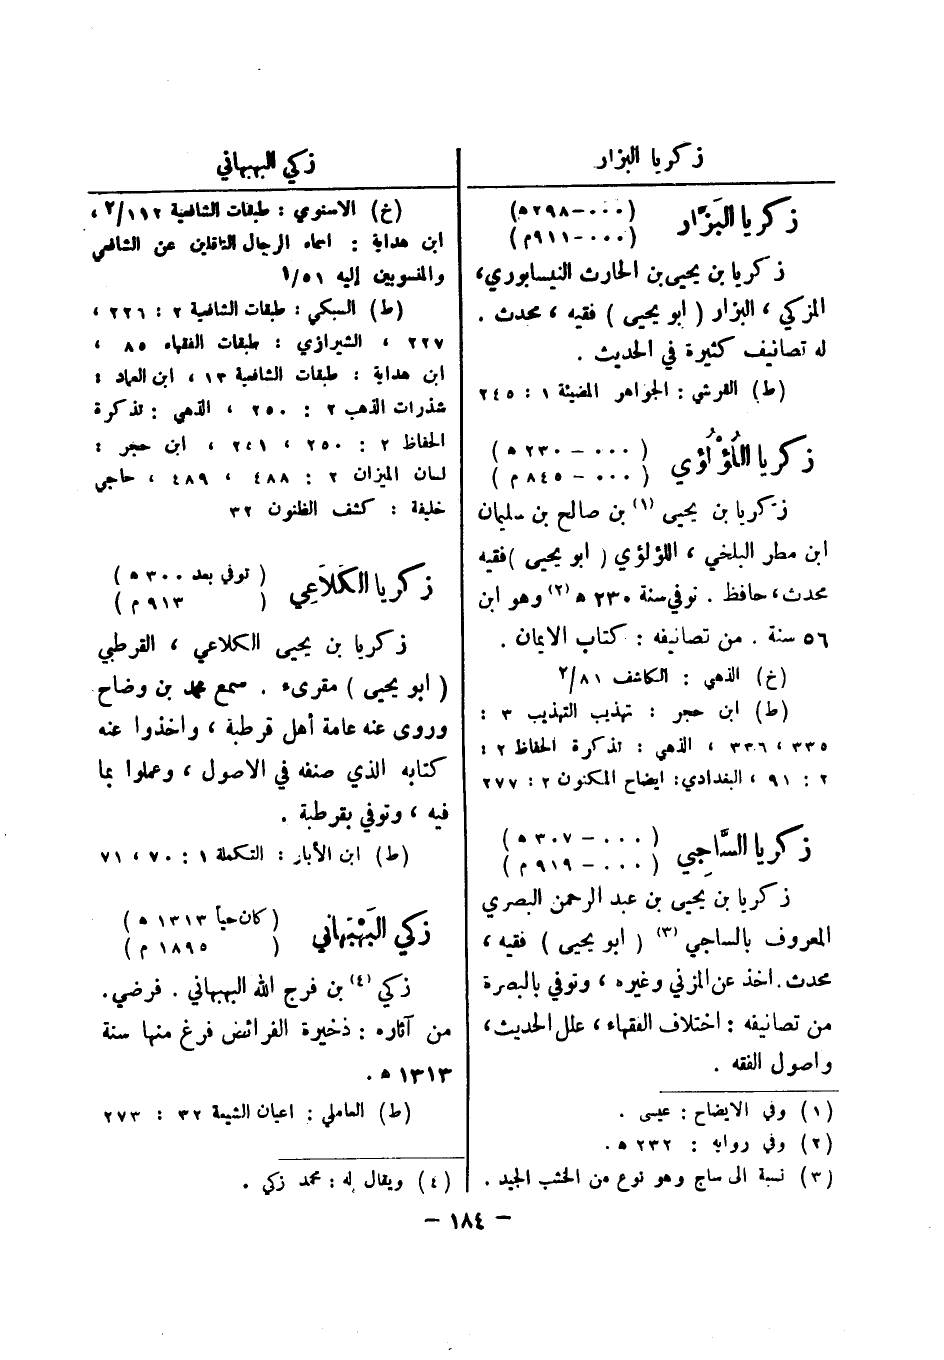 زكريا البزار
زكريا البَزَّار
(٠٠٠ - ٢٩٨ هـ)
(٠٠٠ - ٩١١ م)
زكريا بن يحيى بن الحارث النيسابوري،
المزكي، البزار ( ابو يحيى ) فقيه، محدث .
له تصانيف كثيرة في الحديث .
(ط) القرشي : الجواهر المضيئة ١ : ٢٤٥
زكريا اللُؤْلُؤي
( ٠٠٠ - ٢٣٠ هـ )
( ٠٠٠ - ٨٤٥ م )
زكريا بن يحيى (١) بن صالح بن سليمان
ابن مطر البلخي ، اللؤلؤي ( ابو يحيى ) فقيه
محدث، حافظ . توفي سنة ٢٣٠ هـ (٢) وهو ابن
٥٦ سنة . من تصانيفه : كتاب الايمان .
(خ) الذهبي : الكاشف ٢/٨١
(ط) ابن حجر : تهذيب التهذيب ٣ :
٣٣٥ ، ٣٣٦ ، الذهبي : تذكرة الحفاظ ٢ :
٢ : ٩١ ، البغدادي: ايضاح المكنون ٢ : ٢٧٧
زكريا السَّاجِي
( ٠٠٠ - ٣٠٧ هـ )
( ٠٠٠ - ٩١٩ م )
زكريا بن يحيى بن عبد الرحمن البصري
المعروف بالساجي (٣) ( ابو يحيى ) فقيه ،
محدث . اخذ عن المزني وغيره ، وتوفي بالبصرة
من تصانيفه : اختلاف الفقهاء ، علل الحديث،
واصول الفقه .
(١) وفي الايضاح : عيسى .
(٢) وفي رواية : ٢٣٢ هـ .
(٣) نسبة الى ساج وهو نوع من الخشب الجيد .
زكي البهبهاني
(خ) الاسنوي : طبقات الشافعية ٢/١١٢ ،
ابن هداية : اسماء الرجال الناقلين عن الشافعي
والمنسوبين إليه ١/٥١
(ط) السبكي : طبقات الشافعية ٢ : ٢٢٦ ،
٢٢٧ ، الشيرازي : طبقات الفقهاء ٨٥ ،
ابن هداية : طبقات الشافعية ١٣ ، ابن العماد :
شذرات الذهب ٢ : ٢٥٠ ، الذهبي : تذكرة
الحفاظ ٢ : ٢٥٠ ، ٢٤١ ، ابن حجر :
لسان الميزان ٢ : ٤٨٨ ، ٤٨٩ ، حاجي
خليفة : كشف الظنون ٣٢
زكريا الكَلاَعِي
( توفي بعد ٣٠٠ هـ )
( ٩١٣ م )
زكريا بن يحيى الكلاعي ، القرطبي
( ابو يحيى ) مقرىء . سمع محمد بن وضاح
وروى عنه عامة أهل قرطبة ، واخذوا عنه
كتابه الذي صنفه في الاصول ، وعملوا بما
فيه ، وتوفي بقرطبة .
(ط) ابن الأبار : التكملة ١ : ٧٠ ، ٧١
زكي البَهْبَهاني
( كان حياً ١٣١٣ هـ )
( ١٨٩٥ م )
زكي (٤) بن فرج الله البهبهاني . فرضي .
من آثاره : ذخيرة الفرائض فرغ منها سنة
١٣١٣ هـ .
(ط) العاملي : اعيان الشيعة ٣٢ : ٢٧٣
(٤) ويقال له : محمد زكي .
- ١٨٤ -